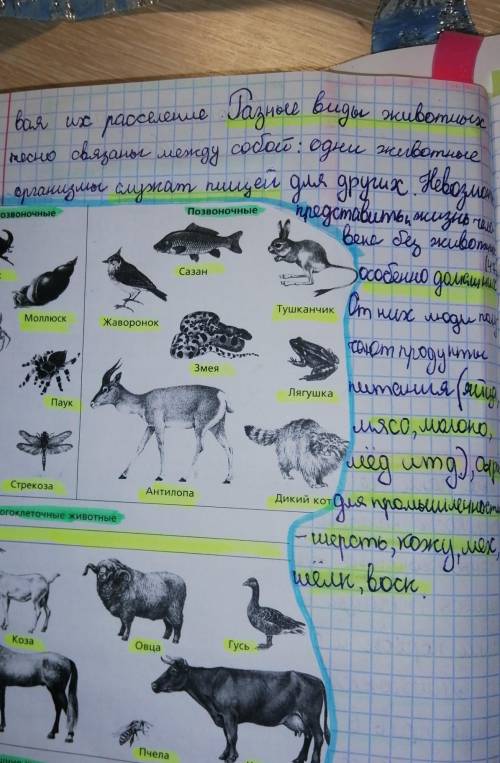 вая их расселение. Разные виды животных
тесно связаны между собой: одни животные
организмы служат пищей для других. Невозмож
представить, жизнь чело
века без животн
особенно домашних
От них люди полу
чают продукты
питания (яйца,
мясо, молоко,
мёд итд), сырь
для промышленности
-шерсть, кожу, мех,
шёлк, воск.
озвоночные
Позвоночные
Сазан
Моллюск
Жаворонок
Тушканчик
Змея
Паук
Лягушка
Стрекоза
Антилопа
Дикий кот
огоклеточные животные
Коза
Овца
Гусь
Пчела